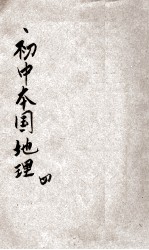 初中本国地理
四